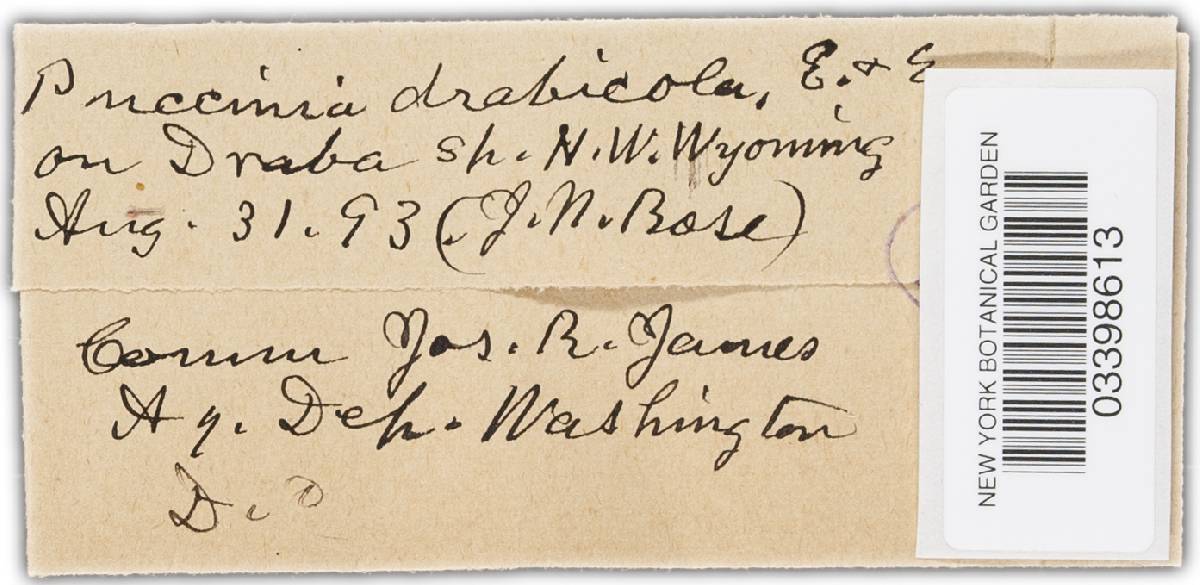 Puccinia drabicola, E. & E
on Draba sp. N.W. Wyoming
Aug. 31. 93 (J.N. Rose)
Comm Jos. R. James
Ag. Dep. Washington
D.C
NEW YORK BOTANICAL GARDEN
03398613